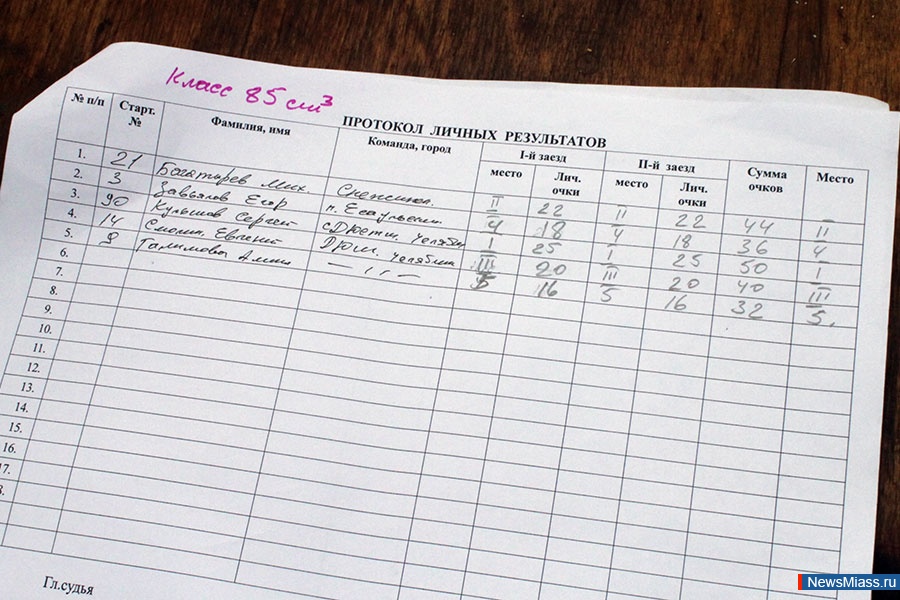 Класс 85 см³
ПРОТОКОЛ ЛИЧНЫХ РЕЗУЛЬТАТОВ
№ п/п Старт. № Фамилия, имя Команда, город I-й заезд II-й заезд Сумма очков Место
место Лич. очки место Лич. очки
1. 21 Богатырев Мих. II 22 II 22 44 II
2. 3 Завьялов Егор 4 18 4 18 36 4
3. 90 Сергей I 25 I 25 50 I
4. 14 Евгений III 20 III 20 40 III
5. 8 5 16 5 16 32 5.
6.
7.
8.
9.
10.
11.
12.
13.
14.
15.
16.
17.
Гл.судья
NewsMiass.ru